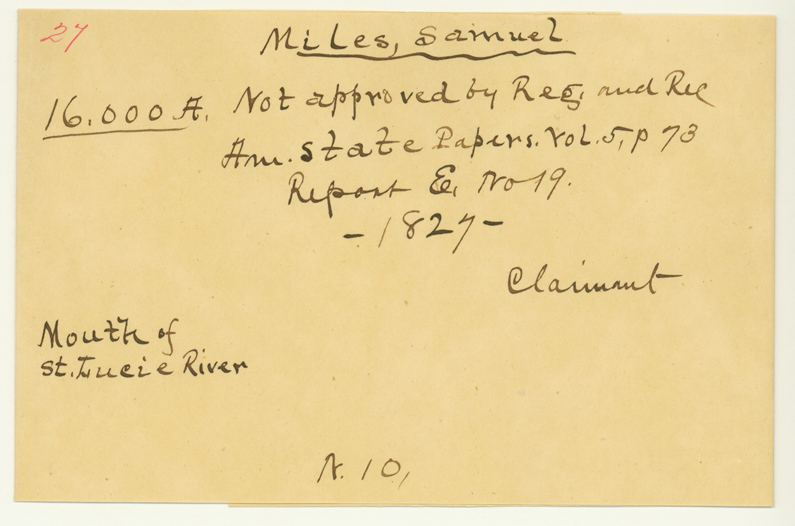 27
Miles, Samuel
16.000 A. Not approved by Reg. and Rec
Am. State Papers. Vol. 5, p 73
Report E, No 19.
- 1827 -
Claimant
Mouth of
St. Lucie River
N. 10,